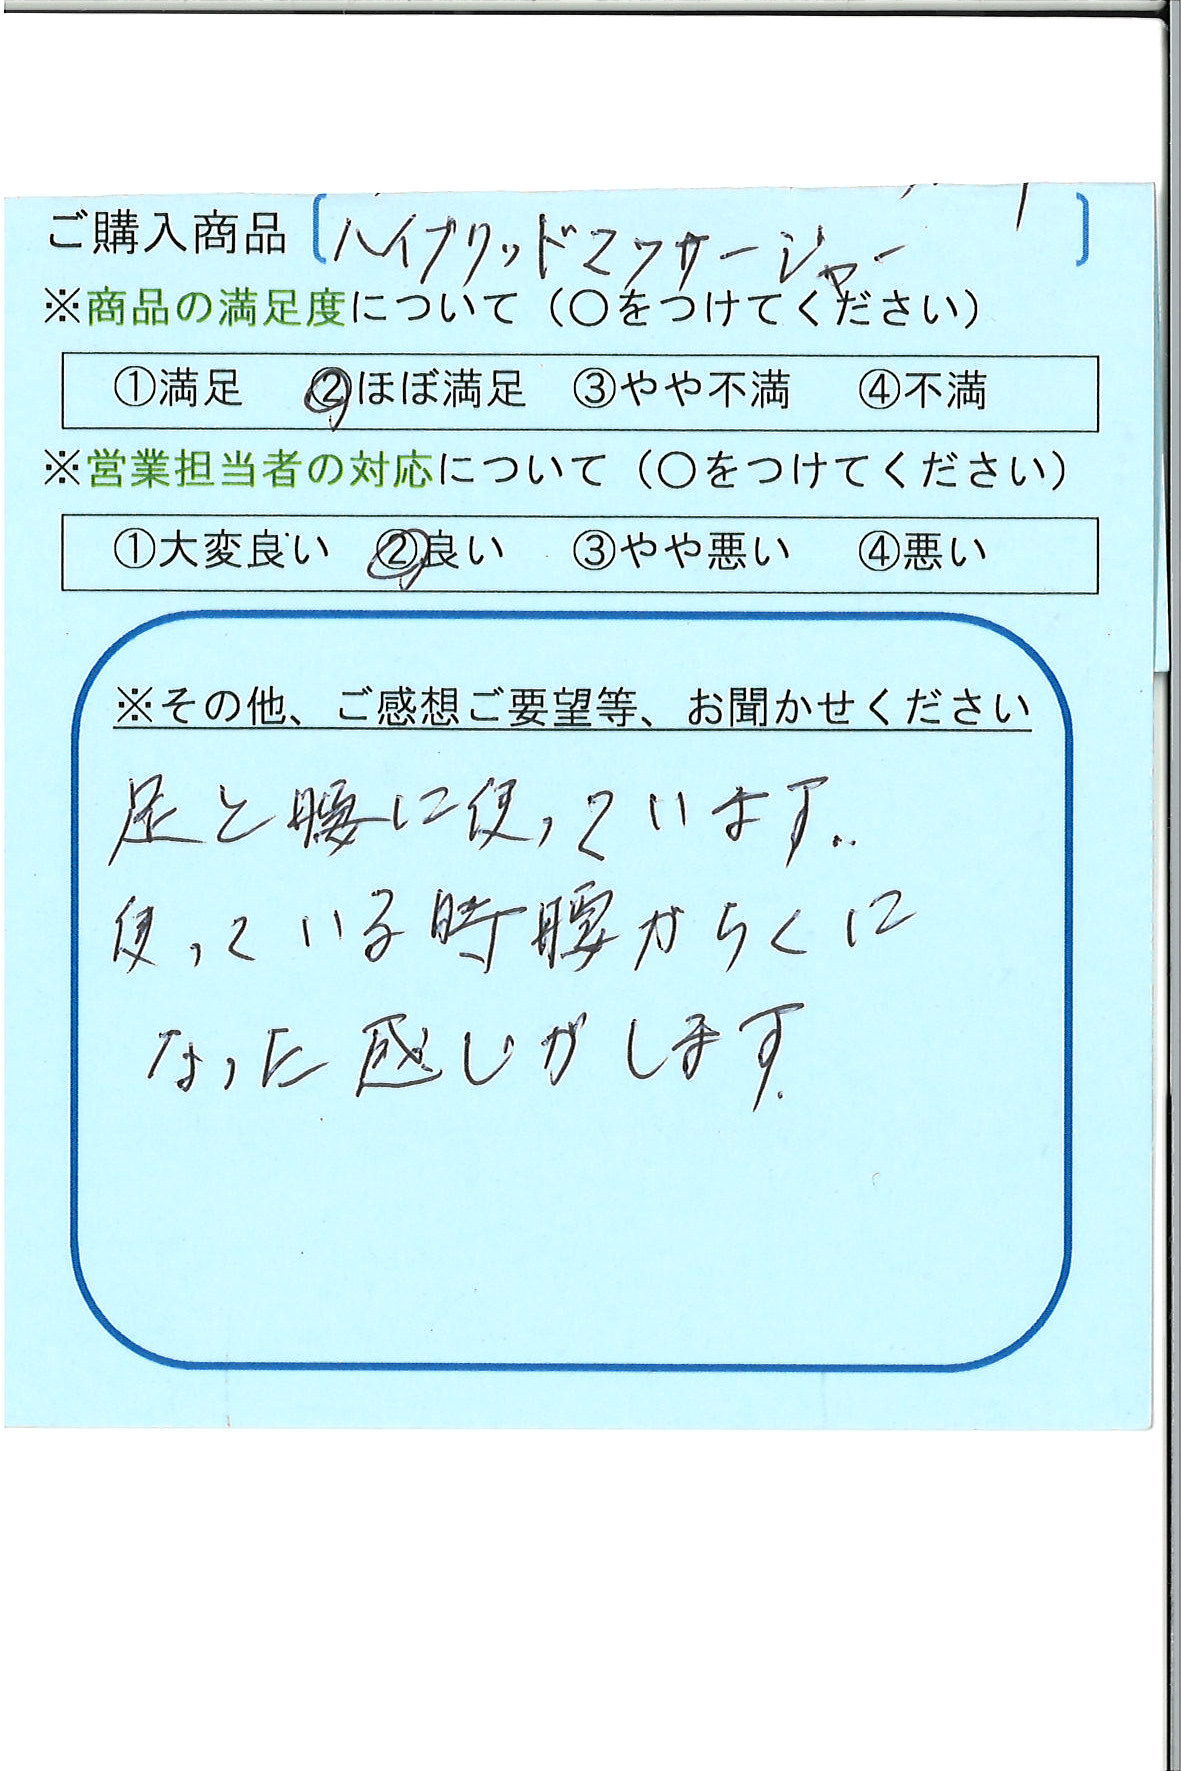 ご購入商品〔ハイブリッドマッサージャー〕
※商品の満足度について（〇をつけてください）
①満足 ②ほぼ満足 ③やや不満 ④不満
※営業担当者の対応について（〇をつけてください）
①大変良い ②良い ③やや悪い ④悪い
※その他、ご感想ご要望等、お聞かせください
足と腰に使っています。
使っている時腰がらくに
なった感じがします